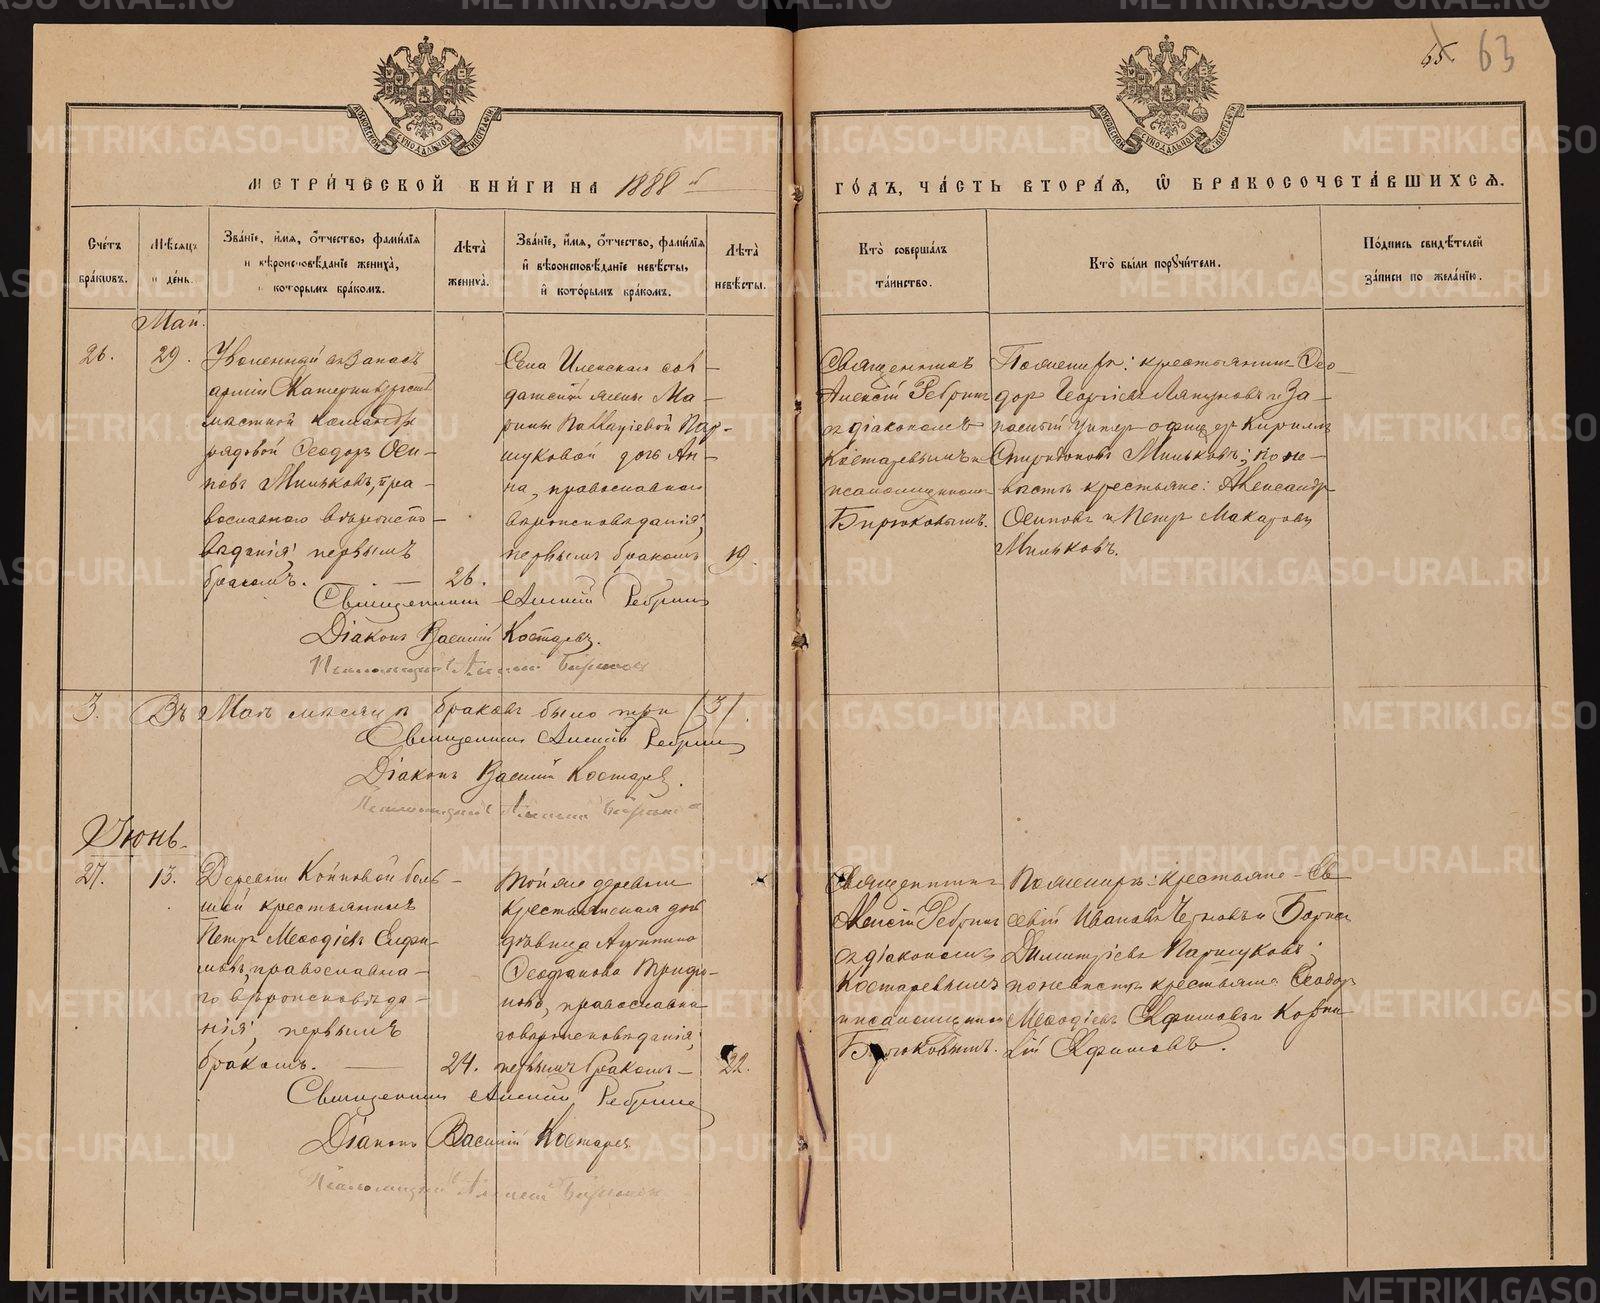 65. 63
МЕТРИ́ЧЕСКОЙ КНИ́ГИ НА 1888 й
ГО́ДЪ, ЧА́СТЬ ВТОРА́Ѧ, Ѿ БРАКОСОЧЕТА́ВШИХСѦ.
Сче́тъ бра́кѡвъ.
Мѣ́сѧцъ и де́нь.
Зва́нїе, и́мѧ, ѻ́тчество, фами́лїѧ и вѣроисповѣ́данїе жениха̀, и кото́рымъ бра́комъ.
Лѣ́та̀ жениха̀.
Зва́нїе, и́мѧ, ѻ́тчество, фами́лїѧ и҆ вѣроисповѣ́данїе невѣ́сты, и҆ кото́рымъ бра́комъ.
Лѣ́та̀ невѣ́сты.
Кто̀ соверша́лъ та́инство.
Кто̀ бы́ли порꙋчи́тели.
По́дпись свидѣ́телей за́писи по жела́нїю.
Май.
26.
29.
Уволенный въ запасъ
арміи Екатеринбургской
мѣстной команды
рядовой Ѳеодоръ Оси-
повъ Мильковъ, пра-
вославнаго вѣроиспо-
вѣданія, первымъ
бракомъ. — 26.
Села
сол-
датской жены Ма-
рины
Пар-
шуковой дочь Ан-
на, православнаго
вѣроисповѣданія,
первымъ бракомъ 19.
Священникъ
Алексій Ребринъ
съ діакономъ
Костаревымъ и
псаломщикомъ
Бирюковымъ.
По женихѣ: крестьянинъ Ѳео-
доръ Георгіевъ Ляпуновъ и За-
пасный Унтеръ офицеръ Кириллъ
Спиридоновъ Мильковъ; по не-
вѣстѣ крестьяне: Александръ
Осиповъ и Петръ Макаровъ
Мильковъ.
Священникъ Алексій Ребринъ
Діаконъ Василій Костаревъ.
Псаломщикъ Алексій Бирюковъ
3. Въ Маѣ мѣсяцѣ браковъ было три /3/.
Священникъ Алексій Ребринъ
Діаконъ Василій Костаревъ.
Псаломщикъ Алексій Бирюковъ
Іюнь.
27.
13.
Деревни Конновой боль-
шей крестьянинъ
Петръ Меѳодіевъ Ефи-
мовъ, православна-
го вѣроисповѣда-
нія, первымъ
бракомъ. — 24.
Той же деревни
крестьянская дочь
дѣвица Агрипина
Ѳеофанова Трифо-
нова, православна
го вѣроисповѣданія,
первымъ бракомъ — 22.
Священникъ
Алексій Ребринъ
съ діакономъ
Костаревымъ
и псаломщикомъ
Бирюковымъ.
По женихѣ: крестьяне — Ев
севій Ивановъ Черновъ и Борисъ
Димитріевъ Паршуковъ;
по невѣстѣ крестьяне Ѳеодоръ
Меѳодіевъ Ефимовъ и Корни
лій Ефимовъ.
Священникъ Алексій Ребринъ
Діаконъ Василій Костаревъ
Псаломщикъ Алексій Бирюковъ
METRIKI.GASO-URAL.RU